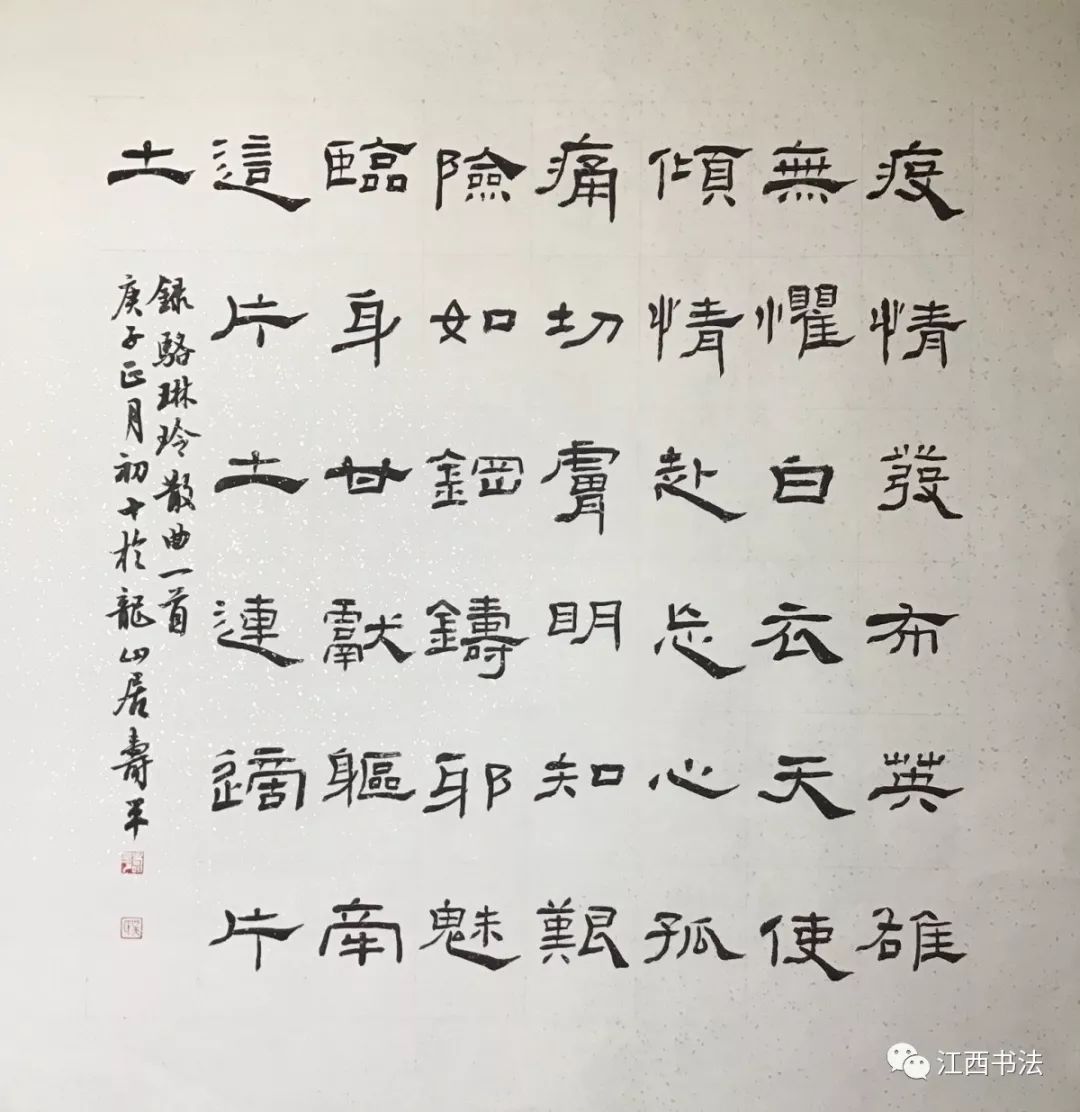 疫情發布英雄
無懼白衣天使
傾情赴忘心孤
痛切膚明知艱
險如鋼鑄耶魅
臨身甘獻軀牽
這片土連適片
土
錄駱琳玲散曲一首
庚子正月初十於龍山居壽平
江西书法